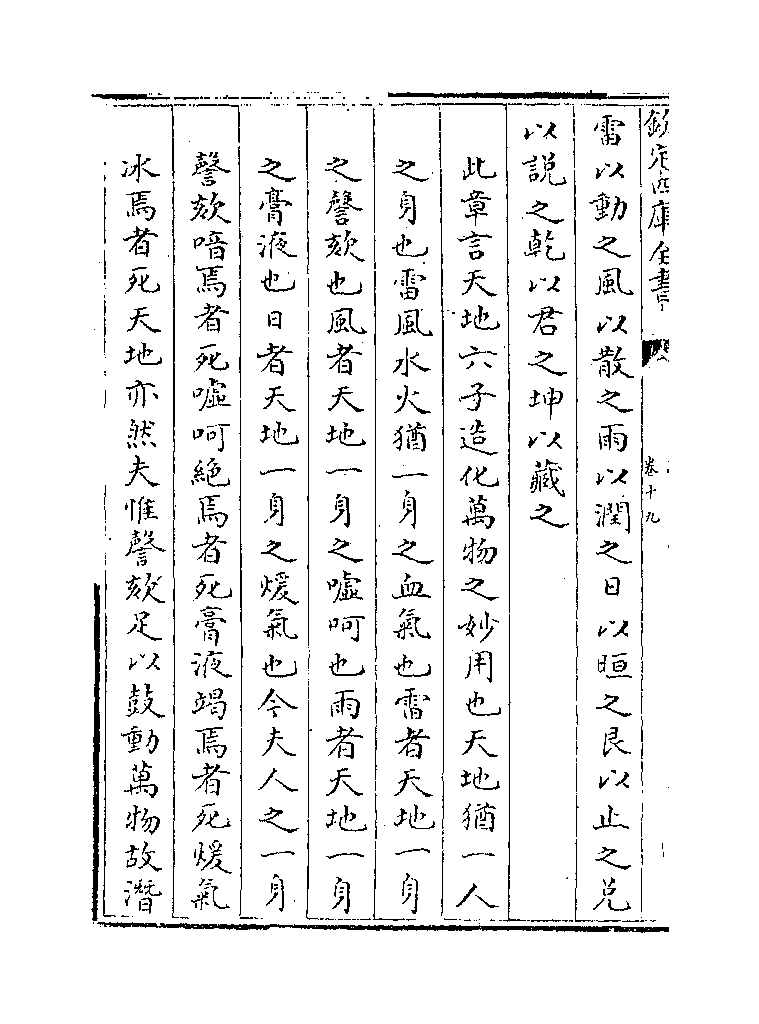 欽定四庫全書
卷十九
雷以動之風以散之雨以潤之日以晅之艮以止之兌
以説之乾以君之坤以藏之
此章言天地六子造化萬物之妙用也天地猶一人
之身也雷風水火猶一身之血氣也雷者天地一身
之謦欬也風者天地一身之噓呵也雨者天地一身
之膏液也日者天地一身之煖氣也今夫人之一身
謦欬喑焉者死噓呵絶焉者死膏液竭焉者死煖氣
冰焉者死天地亦然夫惟謦欬足以鼓動萬物故潛